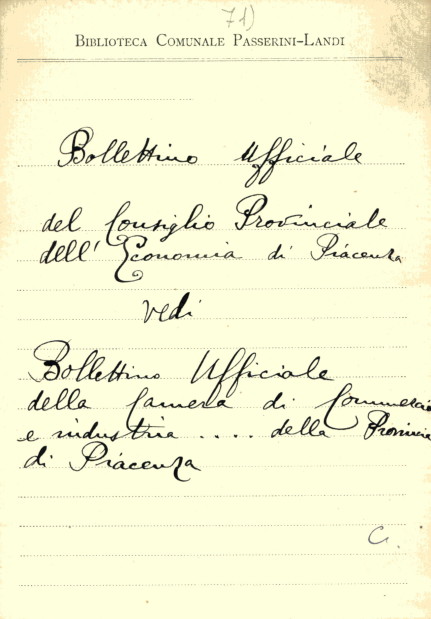 71)
BIBLIOTECA COMUNALE PASSERINI-LANDI
Bollettino Ufficiale
del Consiglio Provinciale
dell'Economia di Piacenza
vedi
Bollettino Ufficiale
della Camera di Commercio
e industria .... della Provincia
di Piacenza
C.